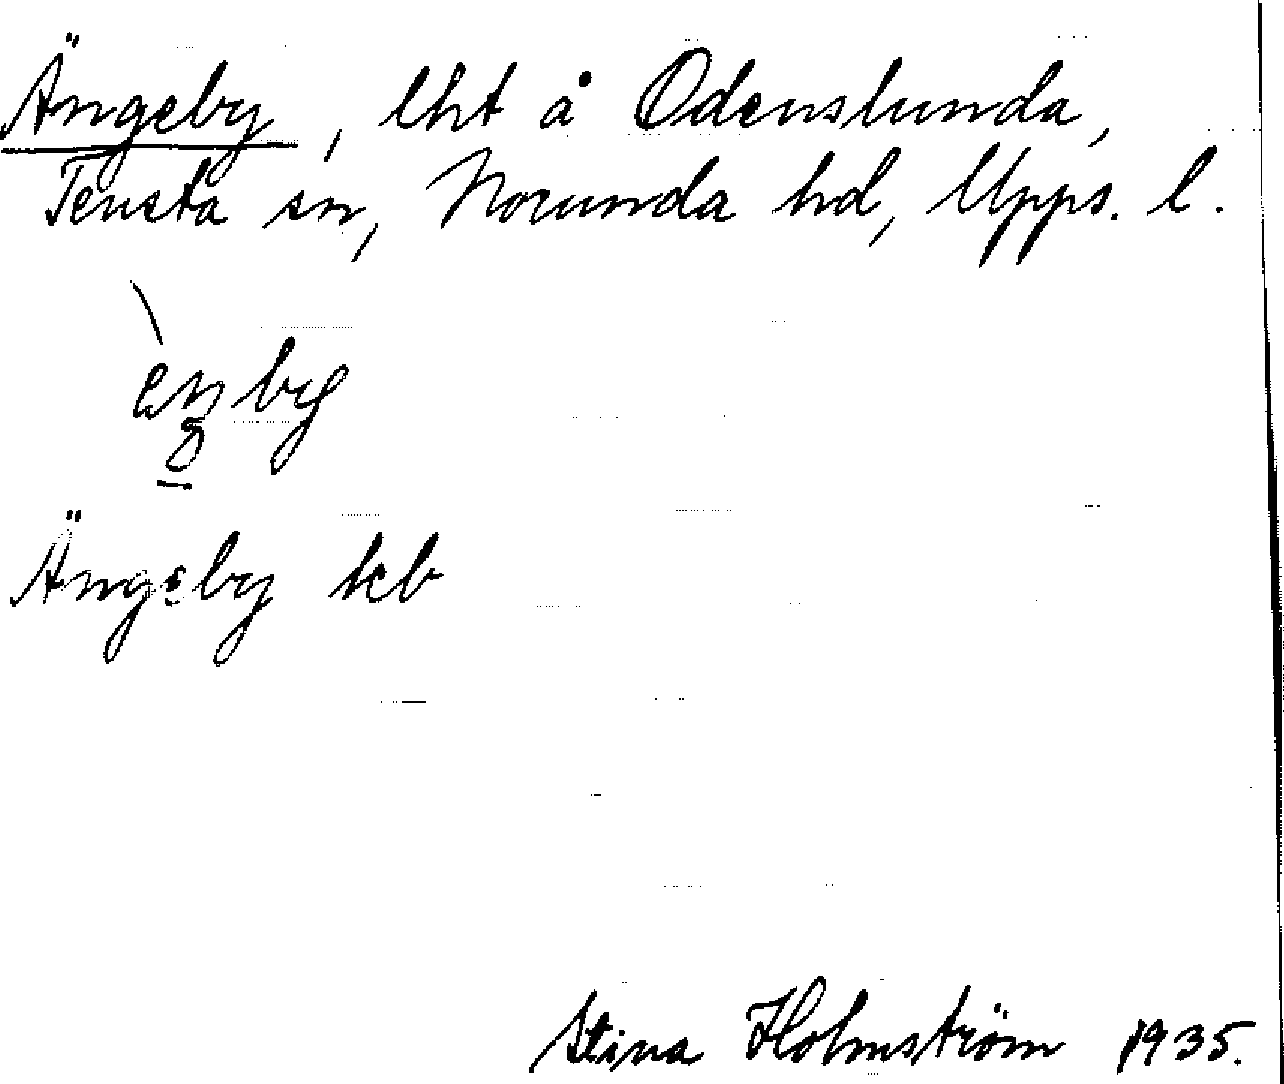 Ängeby, lht å Odenslunda,
Tensta sn, Norunda hd, Upps. l.
Ängeby kb
Stina Holmström 1935.